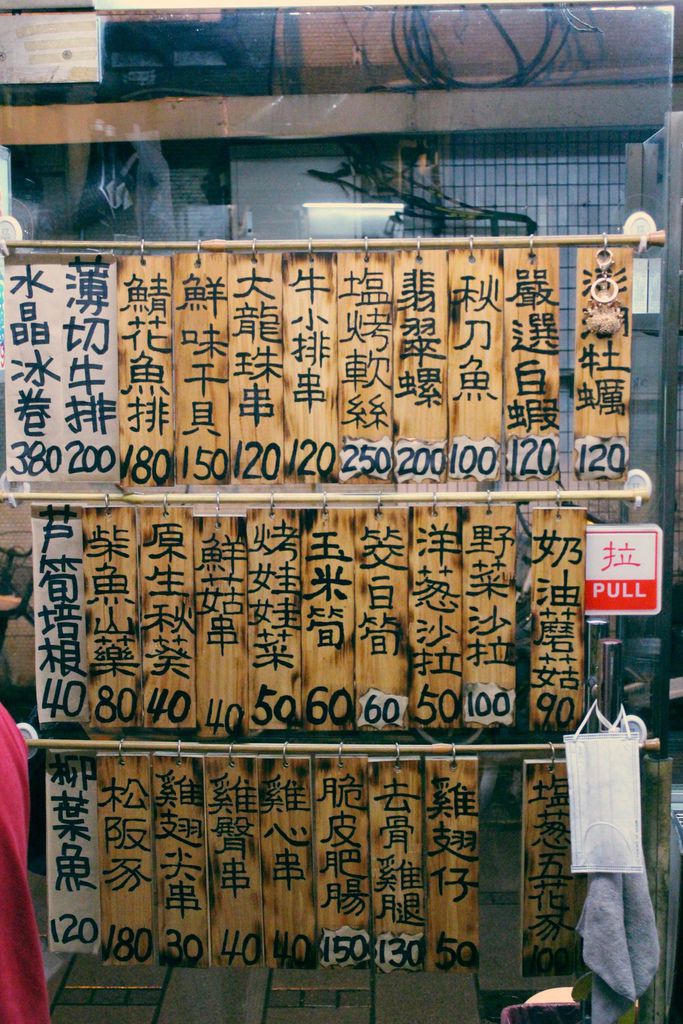 水晶冰卷 380
薄切牛排 200
鯖花魚排 180
鮮味干貝 150
大龍珠串 120
牛小排串 120
塩烤軟絲 250
翡翠螺 200
秋刀魚 100
嚴選白蝦 120
澎湖牡蠣 120
芦筍培根 40
柴魚山藥 80
原生秋葵 40
鮮菇串 40
烤娃娃菜 50
玉米筍 60
筊白筍 60
洋葱沙拉 50
野菜沙拉 100
奶油蘑菇 90
拉
PULL
柳葉魚 120
松阪豕 180
雞翅尖串 30
雞臀串 40
雞心串 40
脆皮肥腸 150
去骨雞腿 130
雞翅仔 50
塩葱五花豕 100